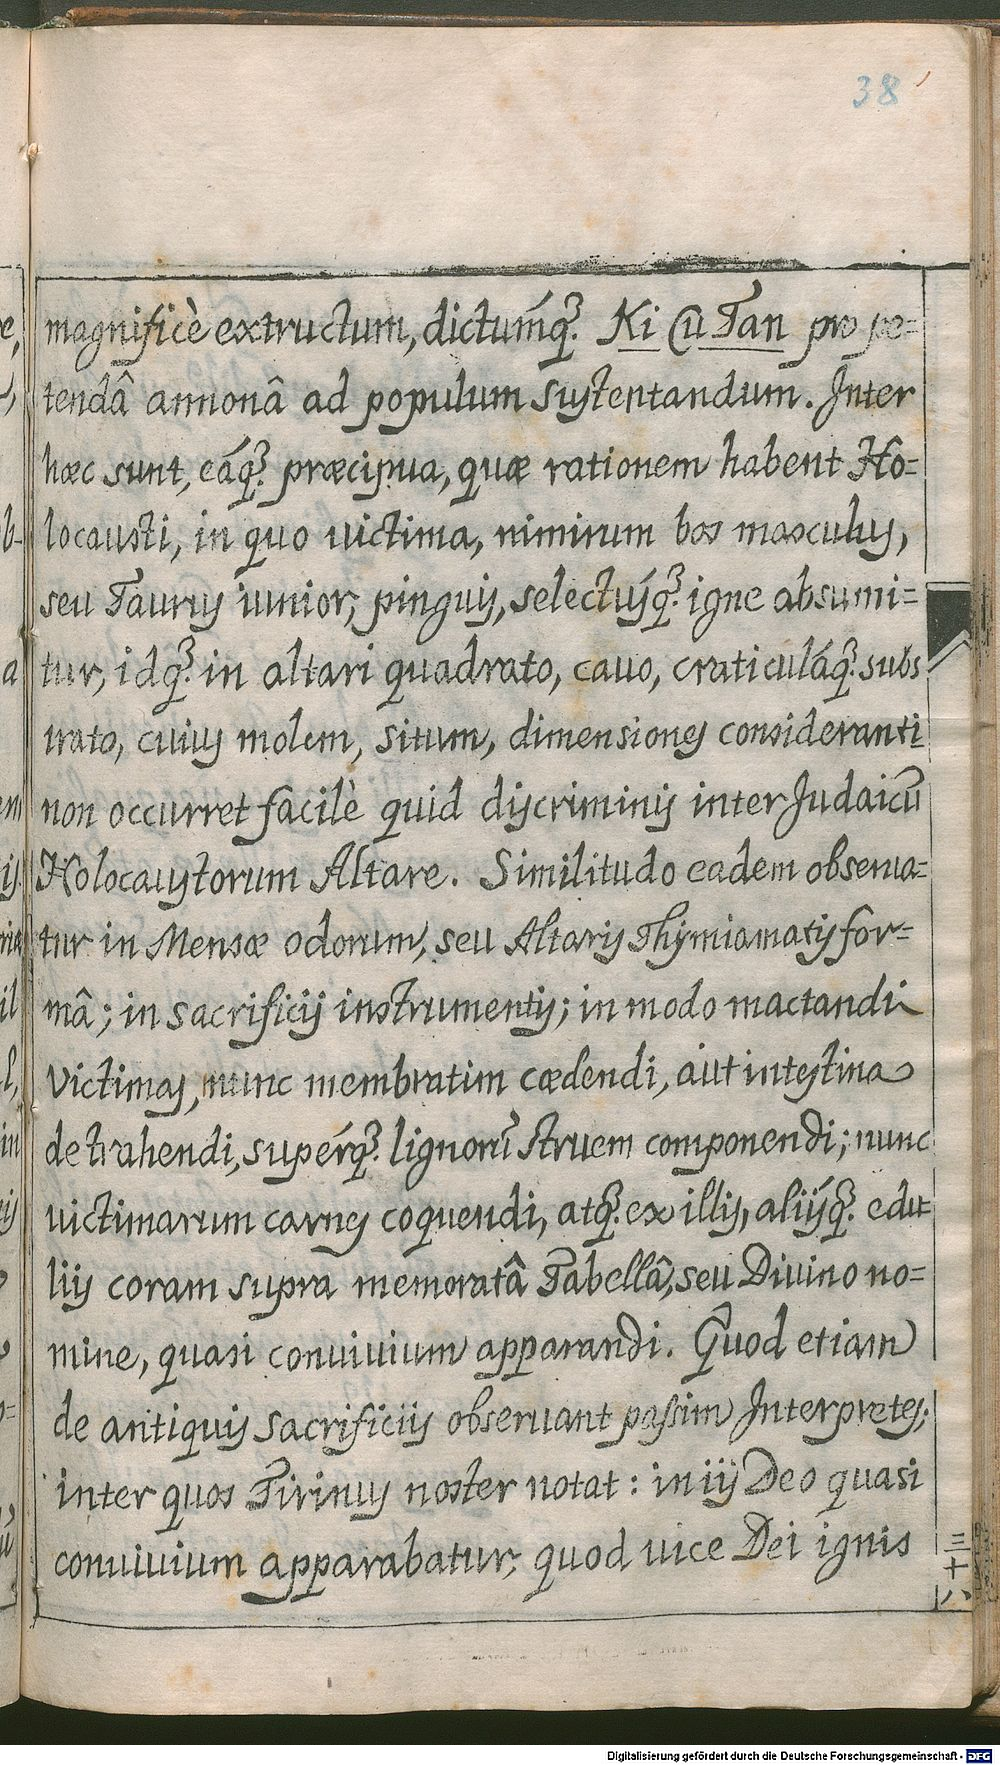 38
magnificè extructum, dictumq́ꝫ. Ki Cu Tan pro pe=
tendâ annonâ ad populum sustentandum. Inter
hæc sunt, eáqꝫ. præcipua, quæ rationem habent Ho=
locausti, in quo victima, nimirum bos masculus,
seu Taurus iunior, pinguis, selectusq́ꝫ. igne absumi=
tur, idqꝫ. in altari quadrato, cauo, craticuláqꝫ. subs
trato, cuius molem, situm, dimensiones consideranti
non occurret facilè quid discriminis inter Judaicū
Holocaustorum Altare. Similitudo eadem obserua=
tur in Mensæ odorum, seu Altaris Thymiamatis for=
mâ; in sacrificij instrumentis; in modo mactandi
victimas, nunc membratim cædendi, aut intestina
detrahendi, supérqꝫ. lignorū struem componendi; nunc
victimarum carnes coquendi, atqꝫ. ex illis, aliisq́ꝫ. edu=
liis coram supra memoratâ Tabellâ, seu Diuino no=
mine, quasi conuiuium apparandi. Quod etiam
de antiquis sacrificiis obseruant passim Interpretes;
inter quos Tirinus noster notat: in iis Deo quasi
conuiuium apparabatur, quod vice Dei ignis
三十八
Digitalisierung gefördert durch die Deutsche Forschungsgemeinschaft - DFG